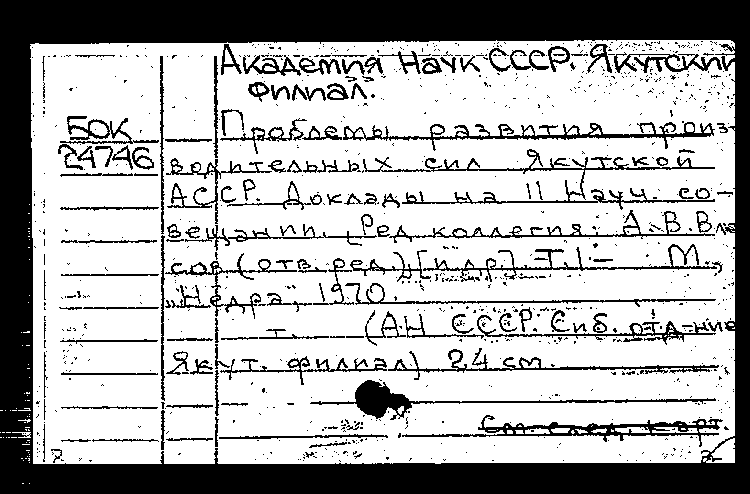 Академия Наук СССР. Якутский
филиал.
БОК
24746
Проблемы развития произ-
водительных сил Якутской
АССР. Доклады на II Науч. со-
вещании. [Ред коллегия: А.В.Вла
сов (отв. ред.), [и др]. Т.1 – М.,
„Недра", 1970.
т. (АН СССР. Сиб. отд-ние
Якут. филиал) 24 см.
См след. карт.